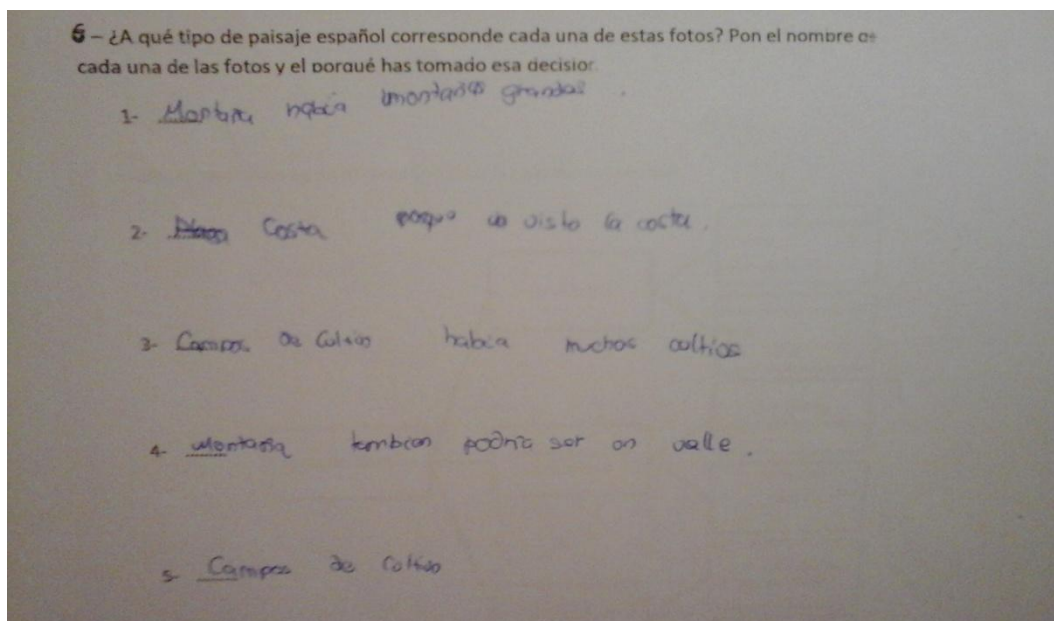 6 – ¿A qué tipo de paisaje español corresponde cada una de estas fotos? Pon el nombre de
cada una de las fotos y el porqué has tomado esa decisión.
1- Montaña había montañas grandes.
2- Playa Costa porque visto la costa.
3- Campos de Coltivo había muchos coltios
4- Montaña tembien podria ser on valle.
5- Campos de Coltivo